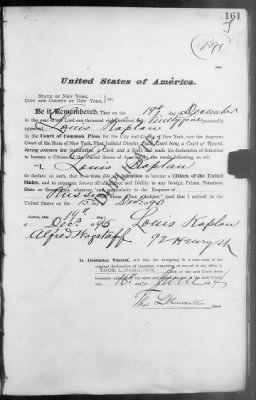 161
1899
United States of America.
STATE OF NEW YORK,
CITY AND COUNTY OF NEW YORK, ss:
Be it Remembered, That on the 19th day of December
in the year of our Lord one thousand eight hundred and ninety five
appeared Louis Kaplan
in the Court of Common Pleas for the City and County of New York, now the Supreme
Court of the State of New York, First Judicial District (said Court being a Court of Record,
having common law jurisdiction, a Clerk and a Seal) and made his declaration of intention
to become a Citizen of the United States of America, in the words following, to wit:
"I, Louis Kaplan
do declare on oath, that it is bona fide my intention to become a Citizen of the United
States, and to renounce forever all allegiance and fidelity to any foreign Prince, Potentate,
State or Sovereignty whatever, and particularly to the Emperor of
Russia of whom I am a subject," (and that I arrived in the
United States on the 15 Dec 1890
Sworn, this 19th
day of Dec. 1895
Louis Kaplan
Alfred Wagstaff
92 Henry st
In Attestation Whereof, and that the foregoing is a true copy of the
original declaration of intention remaining of record in the office, I,
THOS. L. HAMILTON, Clerk of the said Court, have
Thos L Hamilton
Clerk